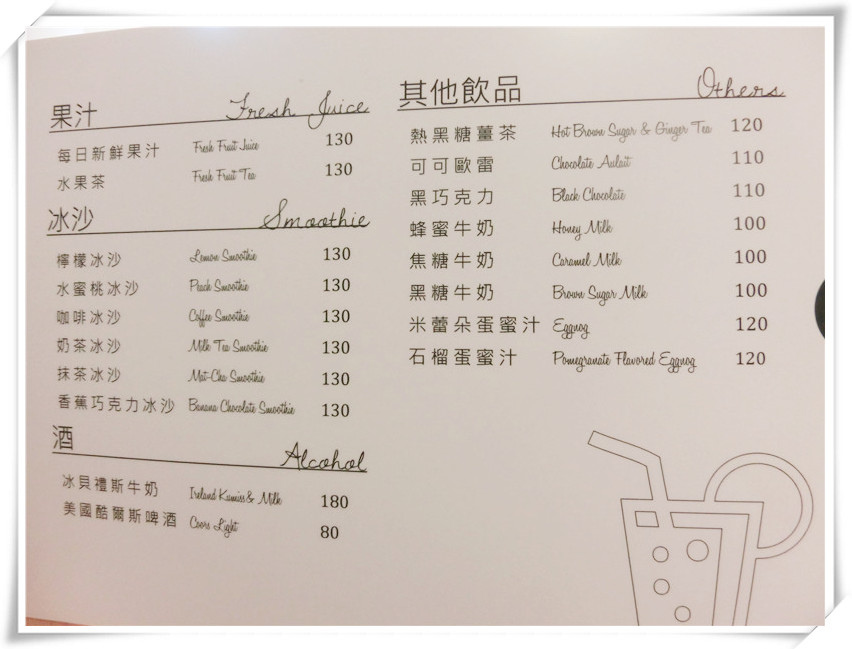 果汁 Fresh Juice
每日新鮮果汁 Fresh Fruit Juice 130
水果茶 Fresh Fruit Tea 130
冰沙 Smoothie
檸檬冰沙 Lemon Smoothie 130
水蜜桃冰沙 Peach Smoothie 130
咖啡冰沙 Coffee Smoothie 130
奶茶冰沙 Milk Tea Smoothie 130
抹茶冰沙 Mat-Cha Smoothie 130
香蕉巧克力冰沙 Banana Chocolate Smoothie 130
酒 Alcohol
冰貝禮斯牛奶 Ireland Kumiss & Milk 180
美國酷爾斯啤酒 Coors Light 80
其他飲品 Others
熱黑糖薑茶 Hot Brown Sugar & Ginger Tea 120
可可歐雷 Chocolate Aulait 110
黑巧克力 Black Chocolate 110
蜂蜜牛奶 Honey Milk 100
焦糖牛奶 Caramel Milk 100
黑糖牛奶 Brown Sugar Milk 100
米蕾朵蛋蜜汁 Eggnog 120
石榴蛋蜜汁 Pomegranate Flavored Eggnog 120